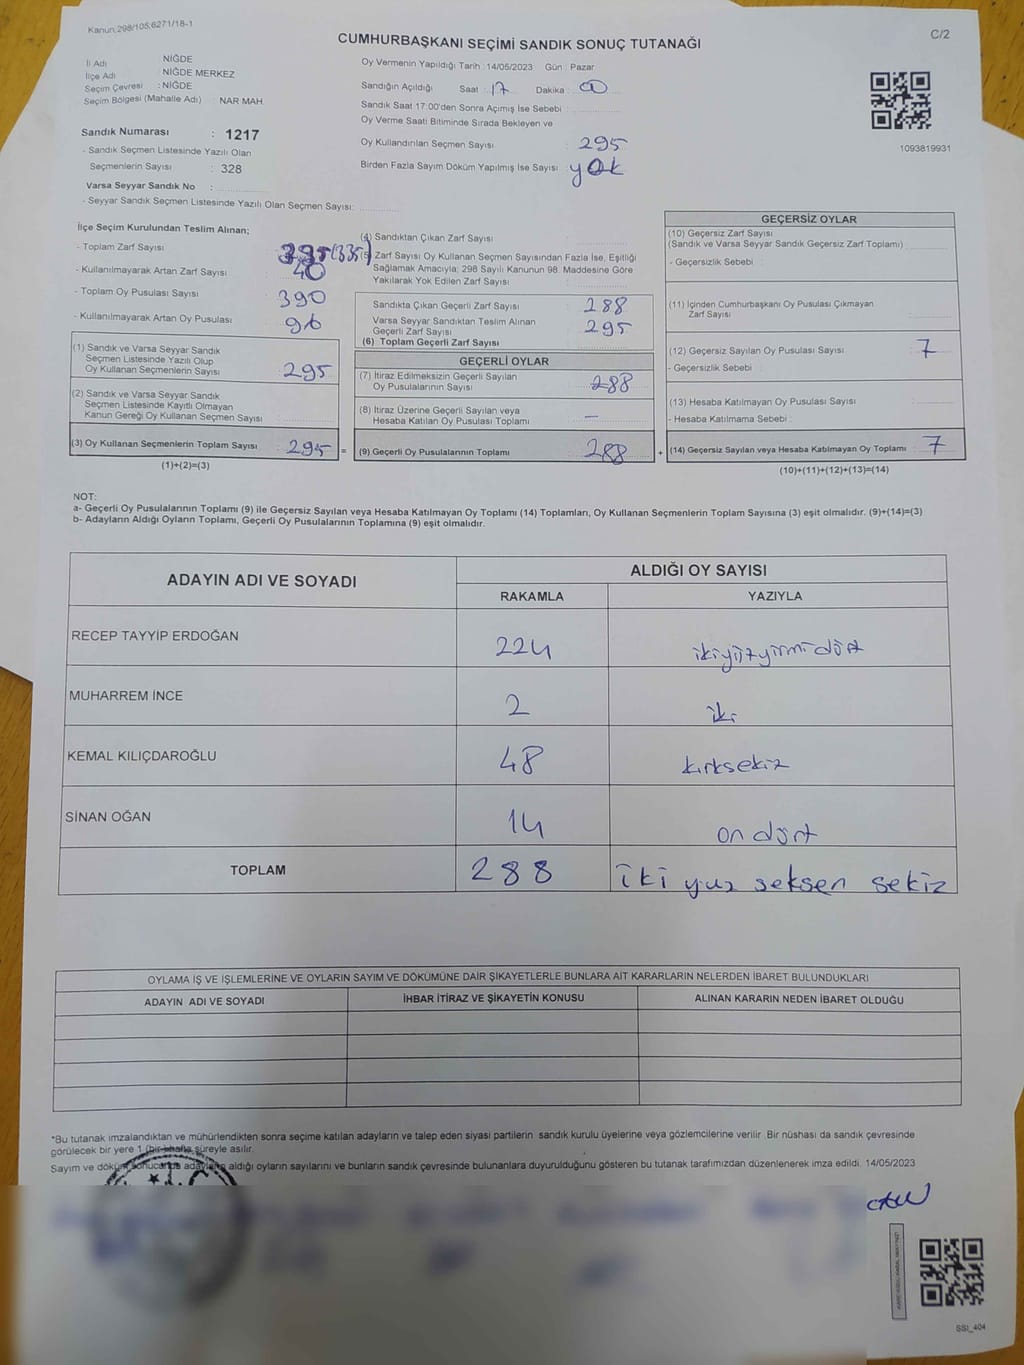 Kanun.298/105,6271/18-1
C/2
CUMHURBAŞKANI SEÇİMİ SANDIK SONUÇ TUTANAĞI
İl Adı : NİĞDE
İlçe Adı : NİĞDE MERKEZ
Seçim Çevresi : NİĞDE
Seçim Bölgesi (Mahalle Adı) : NAR MAH
Sandık Numarası : 1217
- Sandık Seçmen Listesinde Yazılı Olan
Seçmenlerin Sayısı : 328
Varsa Seyyar Sandık No :
- Seyyar Sandık Seçmen Listesinde Yazılı Olan Seçmen Sayısı:
Oy Vermenin Yapıldığı Tarih : 14/05/2023 Gün : Pazar
Sandığın Açıldığı Saat : 17 Dakika :
Sandık Saat 17:00'den Sonra Açımış İse Sebebi :
Oy Verme Saati Bitiminde Sırada Bekleyen ve
Oy Kullandırılan Seçmen Sayısı : 295
Birden Fazla Sayım Döküm Yapılmış İse Sayısı : yok
1093819931
İlçe Seçim Kurulundan Teslim Alınan;
- Toplam Zarf Sayısı : (335)
- Kullanılmayarak Artan Zarf Sayısı : 40
- Toplam Oy Pusulası Sayısı : 390
- Kullanılmayarak Artan Oy Pusulası : 96
(1) Sandık ve Varsa Seyyar Sandık
Seçmen Listesinde Yazılı Olup
Oy Kullanan Seçmenlerin Sayısı : 295
(2) Sandık ve Varsa Seyyar Sandık
Seçmen Listesinde Kayıtlı Olmayan
Kanun Gereği Oy Kullanan Seçmen Sayısı :
(3) Oy Kullanan Seçmenlerin Toplam Sayısı : 295 =
(1)+(2)=(3)
(4) Sandıktan Çıkan Zarf Sayısı :
(5) Zarf Sayısı Oy Kullanan Seçmen Sayısından Fazla İse, Eşitliği
Sağlamak Amacıyla; 298 Sayılı Kanunun 98. Maddesine Göre
Yakılarak Yok Edilen Zarf Sayısı :
Sandıkta Çıkan Geçerli Zarf Sayısı : 288
Varsa Seyyar Sandıktan Teslim Alınan
Geçerli Zarf Sayısı : 295
(6) Toplam Geçerli Zarf Sayısı :
GEÇERLİ OYLAR
(7) İtiraz Edilmeksizin Geçerli Sayılan
Oy Pusulalarının Sayısı : 288
(8) İtiraz Üzerine Geçerli Sayılan veya
Hesaba Katılan Oy Pusulası Toplamı : —
(9) Geçerli Oy Pusulalarının Toplamı : 288 +
GEÇERSİZ OYLAR
(10) Geçersiz Zarf Sayısı
(Sandık ve Varsa Seyyar Sandık Geçersiz Zarf Toplamı) :
- Geçersizlik Sebebi :
(11) İçinden Cumhurbaşkanı Oy Pusulası Çıkmayan
Zarf Sayısı :
(12) Geçersiz Sayılan Oy Pusulası Sayısı : 7
- Geçersizlik Sebebi :
(13) Hesaba Katılmayan Oy Pusulası Sayısı :
- Hesaba Katılmama Sebebi :
(14) Geçersiz Sayılan veya Hesaba Katılmayan Oy Toplamı : 7
(10)+(11)+(12)+(13)=(14)
NOT:
a- Geçerli Oy Pusulalarının Toplamı (9) ile Geçersiz Sayılan veya Hesaba Katılmayan Oy Toplamı (14) Toplamları, Oy Kullanan Seçmenlerin Toplam Sayısına (3) eşit olmalıdır. (9)+(14)=(3)
b- Adayların Aldığı Oyların Toplamı, Geçerli Oy Pusulalarının Toplamına (9) eşit olmalıdır.
ADAYIN ADI VE SOYADI
ALDIĞI OY SAYISI
RAKAMLA YAZIYLA
RECEP TAYYİP ERDOĞAN 224 ikiyüzyirmidört
MUHARREM İNCE 2 iki
KEMAL KILIÇDAROĞLU 48 kırksekiz
SİNAN OĞAN 14 on dört
TOPLAM 288 iki yuz seksen sekiz
OYLAMA İŞ VE İŞLEMLERİNE VE OYLARIN SAYIM VE DÖKÜMÜNE DAİR ŞİKAYETLERLE BUNLARA AİT KARARLARIN NELERDEN İBARET BULUNDUKLARI
ADAYIN ADI VE SOYADI İHBAR İTİRAZ VE ŞİKAYETİN KONUSU ALINAN KARARIN NEDEN İBARET OLDUĞU
*Bu tutanak imzalandıktan ve mühürlendikten sonra seçime katılan adayların ve talep eden siyasi partilerin sandık kurulu üyelerine veya gözlemcilerine verilir. Bir nüshası da sandık çevresinde
görülecek bir yere 1 (bir) hafta süreyle asılır.
Sayım ve döküm sonucunda adayların aldığı oyların sayılarını ve bunların sandık çevresinde bulunanlara duyurulduğunu gösteren bu tutanak tarafımızdan düzenlenerek imza edildi. 14/05/2023
SSI_404